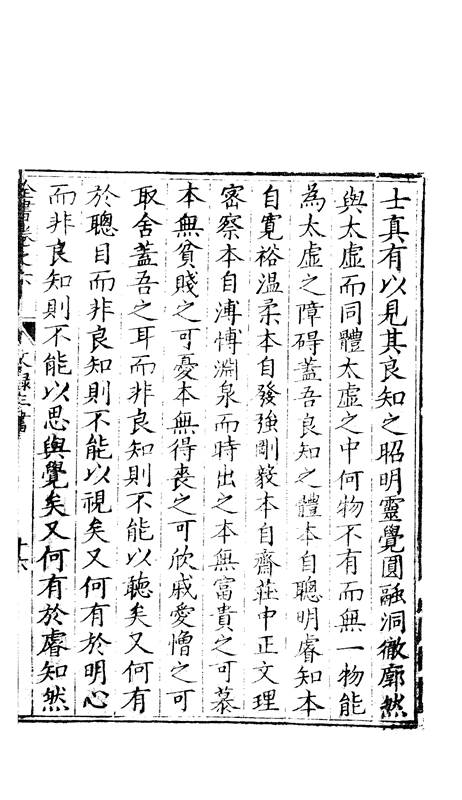 士真有以見其良知之昭明靈覺圓融洞徹廓然
與太虛而同體太虛之中何物不有而無一物能
為太虛之障碍蓋吾良知之體本自聰明睿知本
自寬裕溫柔本自發強剛毅本自齋莊中正文理
密察本自溥愽淵泉而時出之本無富貴之可慕
本無貧賤之可憂本無得喪之可欣戚愛憎之可
取舍蓋吾之耳而非良知則不能以聽矣又何有
於聰目而非良知則不能以視矣又何有於明心
而非良知則不能以思與覺矣又何有於睿知然
文錄三
十六